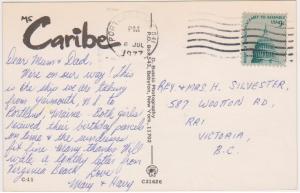 MS
Caribe
PM
JUL
1977
RIGHT OF PEOPLE PEACEABLY TO ASSEMBLE
Dear Mum + Dad,
Here on our way, this
is the ship we are taking
from Yarmouth, N.S to
Portland, Maine. Both girls
received their birthday parcels
on time & the sundresses
fit fine. Many thanks. Will
write a letter later from
Virginia Beach. Love
Mary & Harry
REV + MRS H. SILVESTER,
587 WOOTTON RD,
RR1
VICTORIA,
B.C.
C-11
C31626